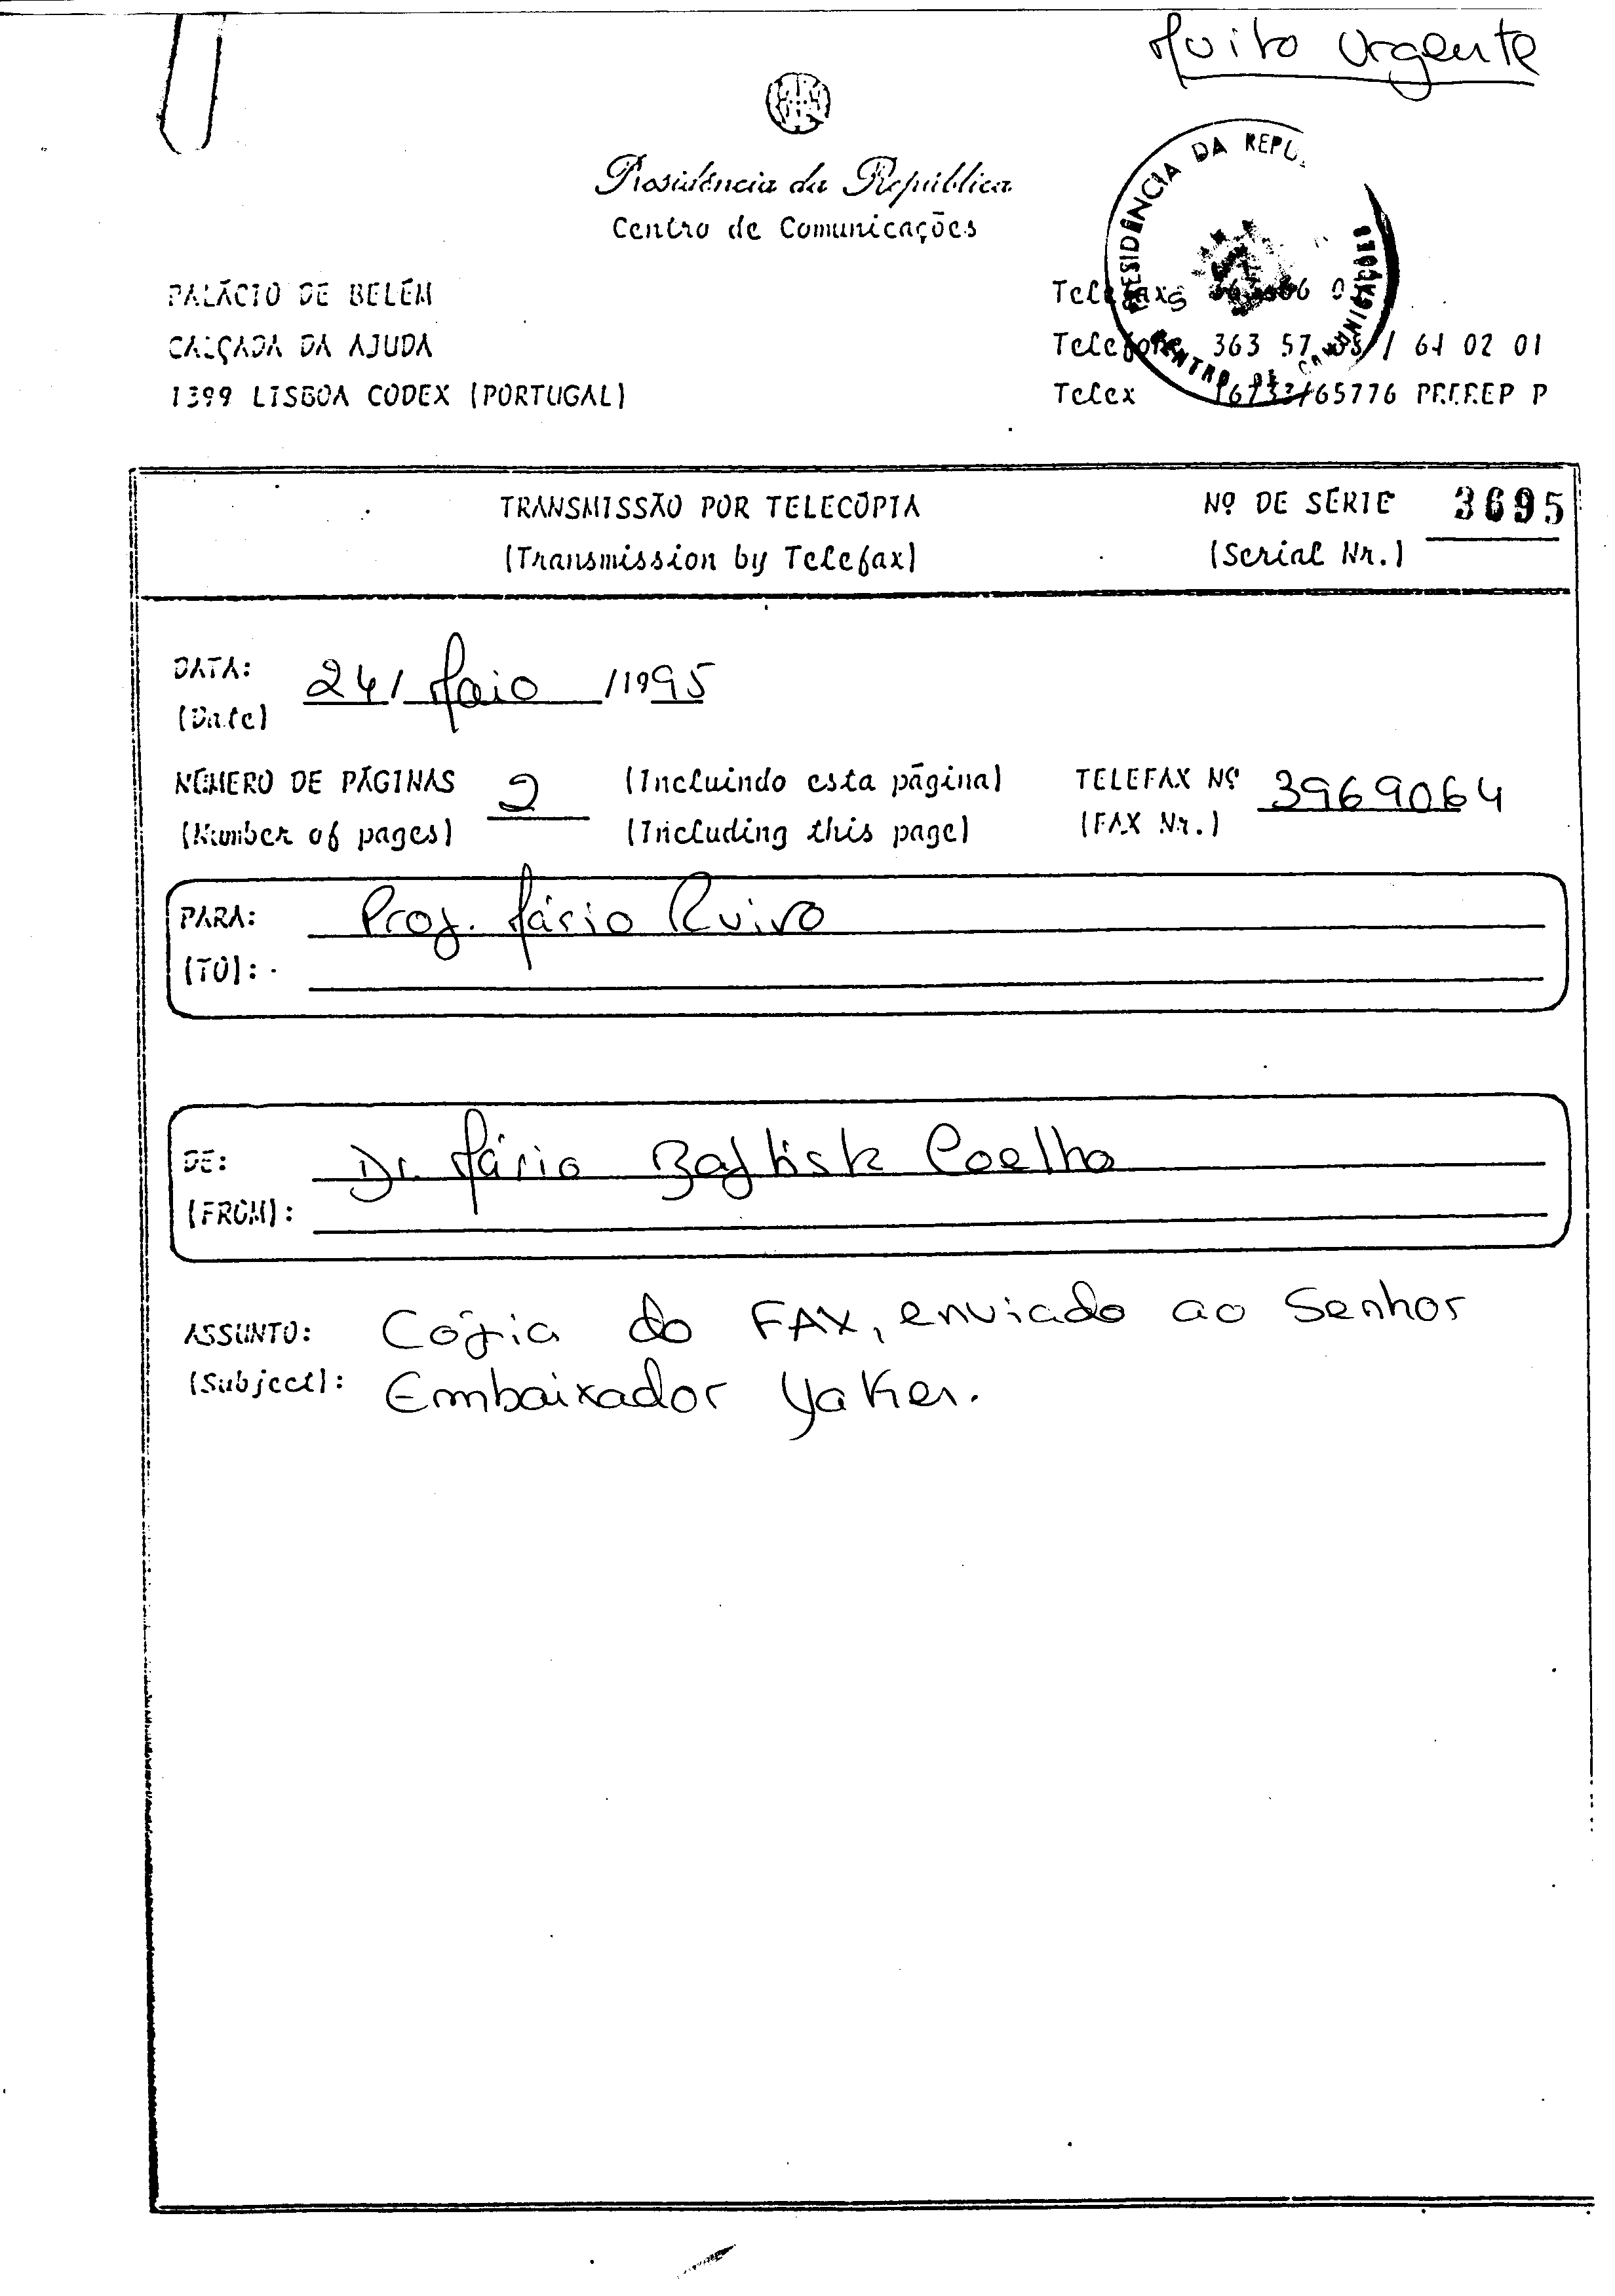 Muito Urgente
Presidência da República
Centro de Comunicações
PRESIDÊNCIA DA REPÚ
CENTRO DE COMUNICAÇÕES
PALÁCIO DE BELÉM
CALÇADA DA AJUDA
1399 LISBOA CODEX (PORTUGAL)
Telefax
Telefone 363 57 / 61 02 01
Telex 16733/65776 P
TRANSMISSÃO POR TELECÓPIA
(Transmission by Telefax)
Nº DE SÉRIE 3695
(Serial Nr.)
DATA: 24/ Maio /1995
(Date)
NÚMERO DE PÁGINAS 2 (Incluindo esta página) TELEFAX Nº 3969064
(Number of pages) (Including this page) (FAX Nr.)
PARA: Prof. Mário Ruivo
(TO):
DE: Dr. Mário Baptista Coelho
(FROM):
ASSUNTO: Cópia do FAX, enviado ao Senhor
(Subject): Embaixador Yaker.